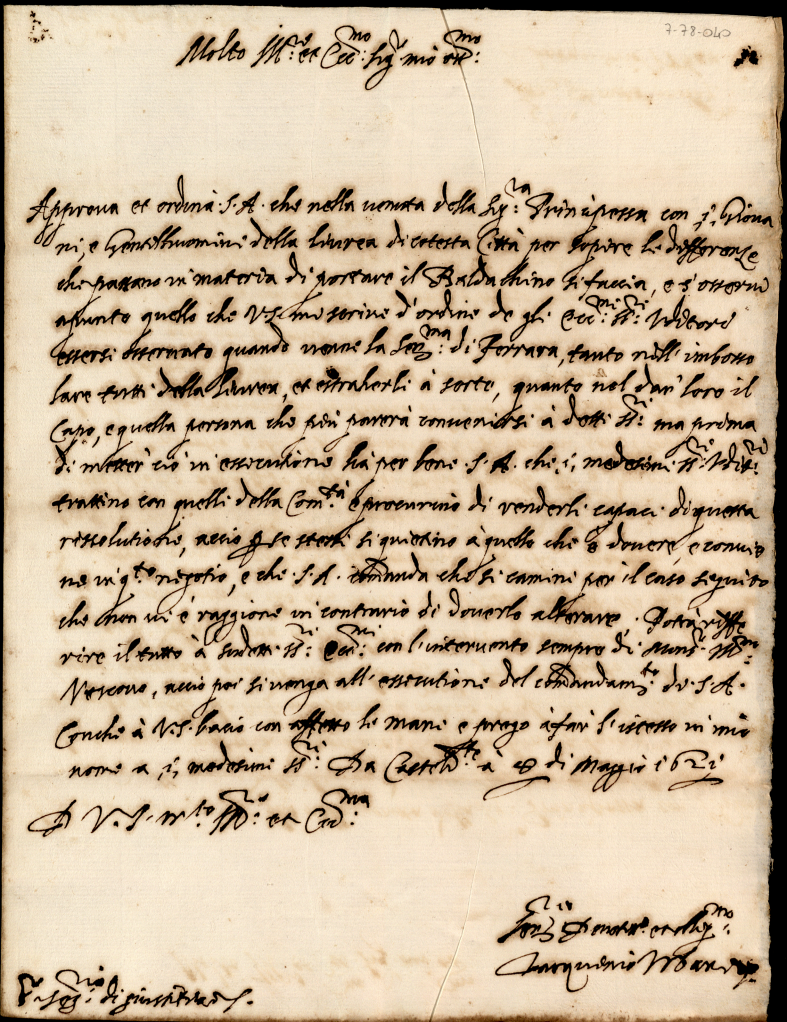 7-78-040
Molto Ill.re et Ecc.mo Sig.r mio oss.mo:
Approva et ordina S. A. che nella venuta della Sig.ra Principessa con i Giova
ni, e Gentilhuomini della laurea di cotesta Città per sopire le differenze
che passano in materia di portare il Baldachino si faccia, e s'osservi
apunto quello che V.S. mi scrive d'ordine de gli Ecc.mi SS.ri Uditori
essersi osservato quando venne la Ser.ma di Ferrara, tanto nell'imbosso
lare tutti della laurea, et estraherli à sorte, quanto nel dar loro il
Capo, e quella persona che più parerà convenirsi à detti SS.ri ma prima
di metter ciò in essecutione hà per bene S. A. che i medesimi SS.ri Udit.ri
trattino con quelli della Com.tà e procurino di renderli capaci di questa
rissolutione, acciò per se stessi si quietino à quello che è dovere, e convie
ne in q.to negotio, e che S. A. comanda che si camini per il caso seguito
che non vi è raggione in contrario di doverlo alterare. Potrà riffe
rire il tutto à sudetti SS.ri Ecc.mi con l'intervento sempre di Mons.r Ill.mo
Vescovo, acciò poi si venga all'essecutione del comandam.to di S. A.
Conche à V.S. bacio con affetto le mani e prego à far l'istesso in mio
nome a i medesimi SS.ri Da Casteld.te à 8 di Maggio 1621
D V. S. m.to Ill.re et Ecc.ma
Ser.re et oblig.mo
Tarquinio